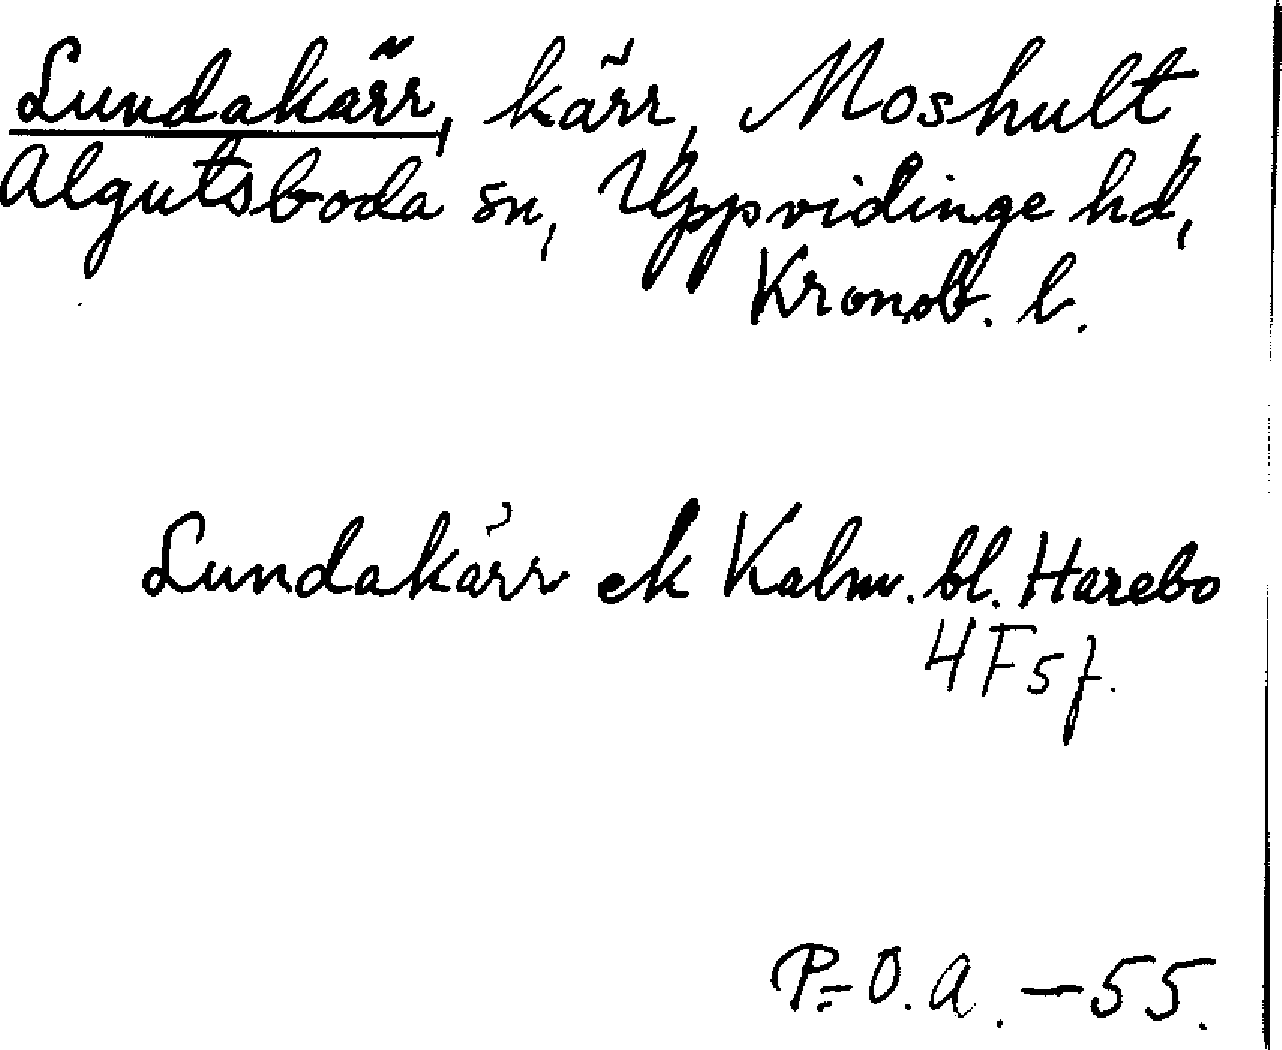 Lundakärr, kärr, Moshult,
Algutsboda sn, Uppvidinge hd,
Kronob. l.
Lundakärr ek Kalm. bl. Harebo
4F5f.
P-O.A. -55.